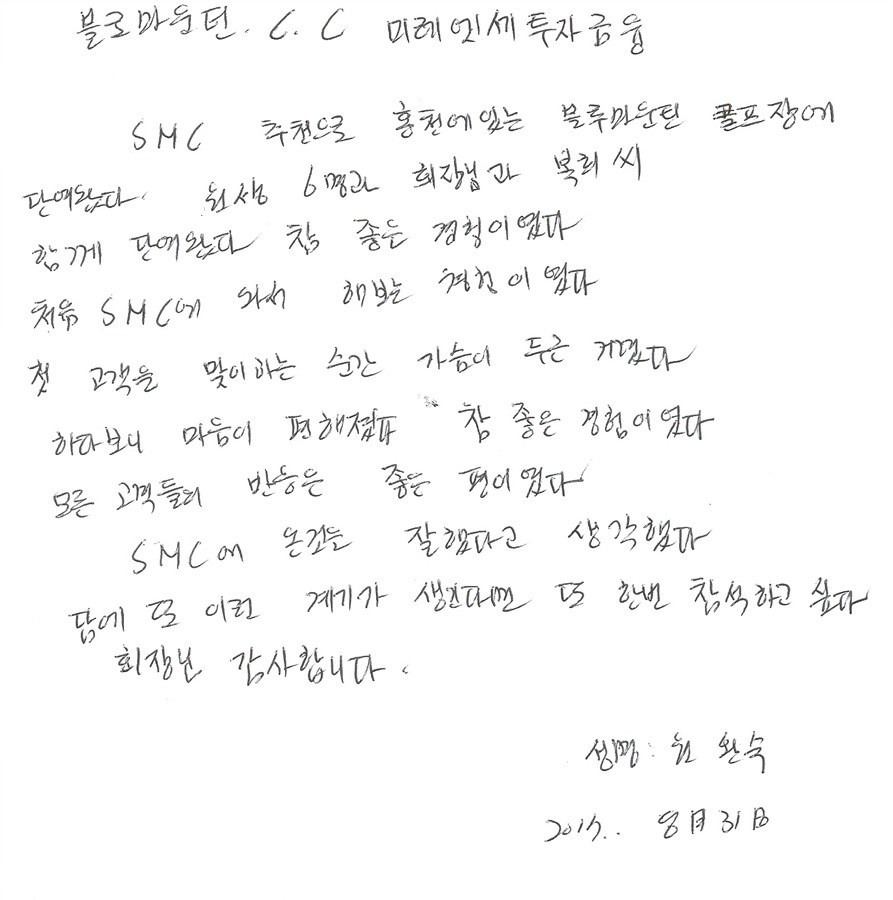 블로마운턴. C. C 미레엣세투자금융
SMC 추천으로 홍천에있는 블루마운틴 골프장에
단여왔다. 원생 6명과 회장님과 복희 씨
함게 단여왔다 참 좋은 경험이였다
처음 SMC에 와서 해보는 경험이였다
첫 고객을 맞이하는 순간 가슴이 두근 거렸다
하다보니 마음이 편해졌다 참 좋은 경험이였다
모든 고객들의 반응은 좋은 편이였다
SMC에 온것은 잘했다고 생각했다
담에 또 이런 계기가 생긴다면 또 한번 참석하고 싶다
회장님 감사합니다.
성명: 원 완숙
8月 31日